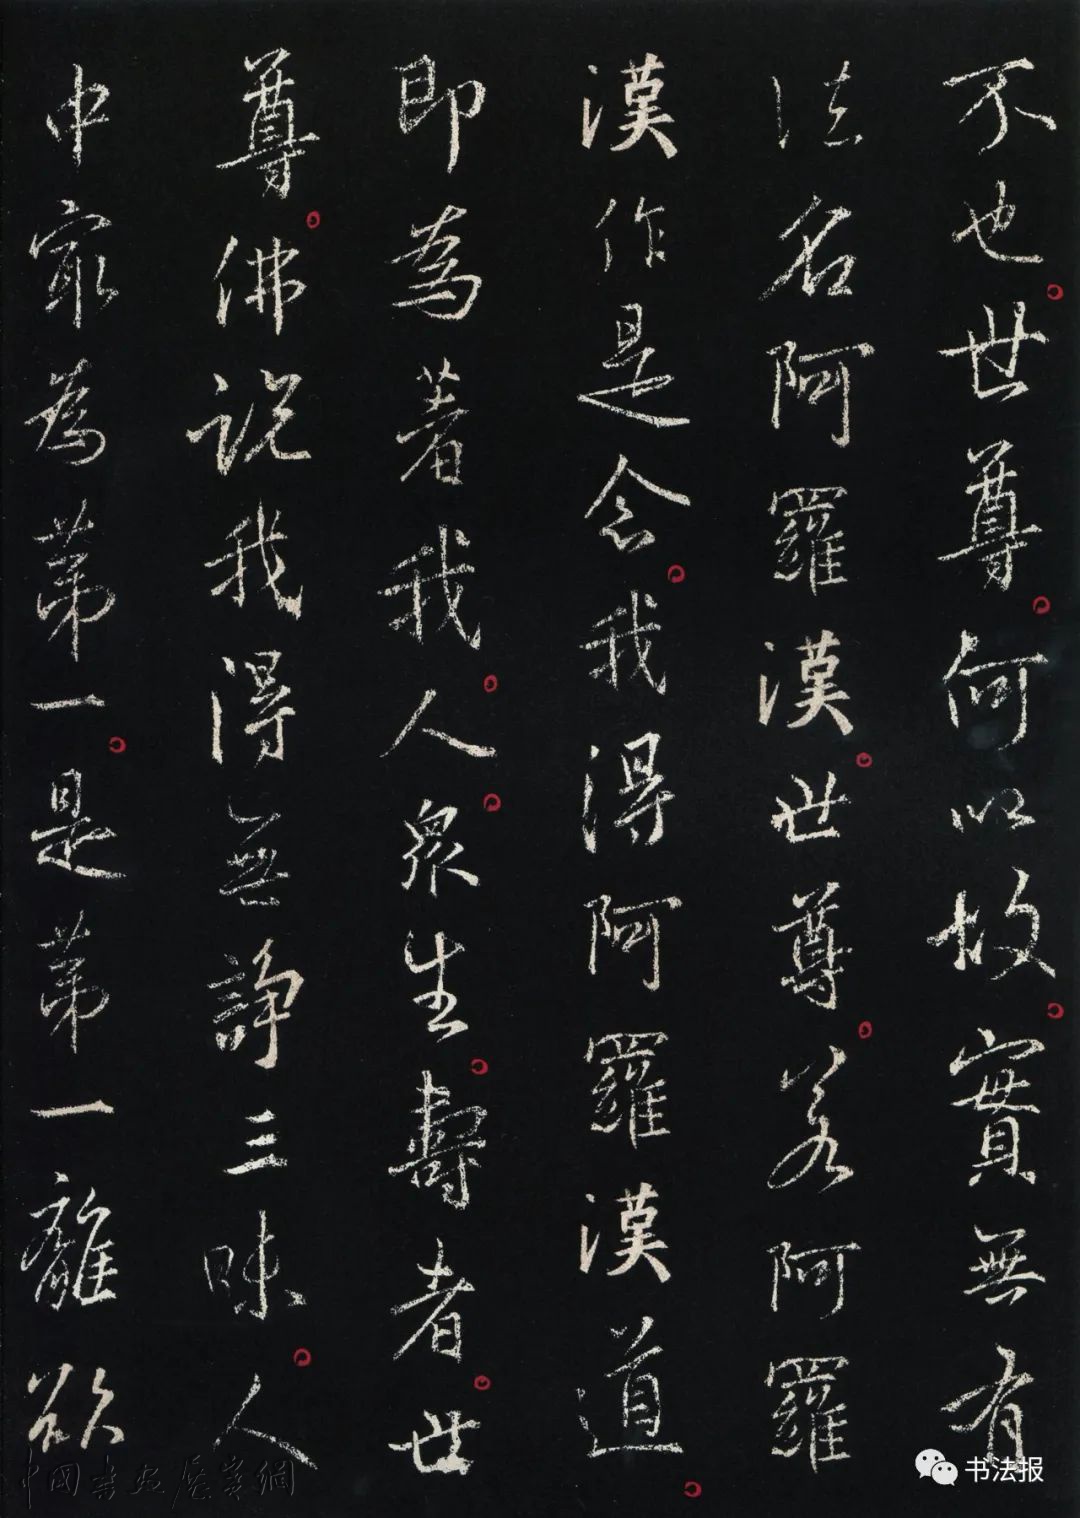 不也世尊何以故實無有
法名阿羅漢世尊若阿羅
漢作是念我得阿羅漢道
即為著我人衆生壽者世
尊佛說我得無諍三昧人
中最為第一是第一離欲
中國書画展赛網
书法报